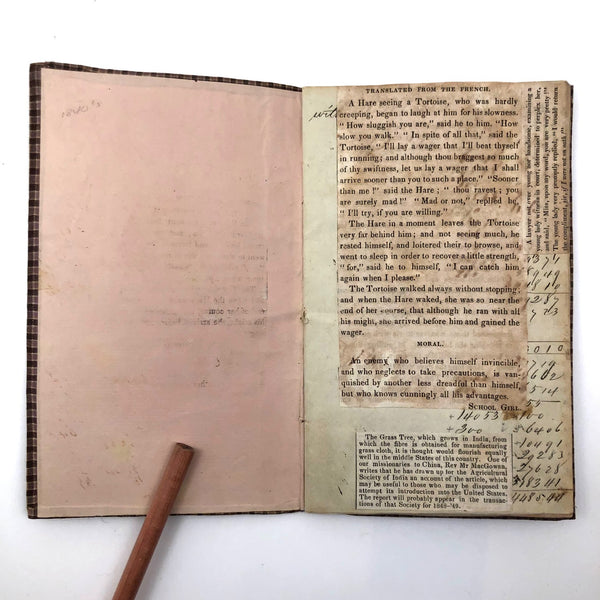 TRANSLATED FROM THE FRENCH.
A Hare seeing a Tortoise, who was hardly
creeping, began to laugh at him for his slowness.
"How sluggish you are," said he to him. "How
slow you walk." "In spite of all that," said the
Tortoise, "I'll lay a wager that I'll beat thyself
in running; and although thou braggest so much
of thy swiftness, let us lay a wager that I shall
arrive sooner than you to such a place." "Sooner
than me!" said the Hare; "thou ravest; you
are surely mad!" "Mad or not," replied he,
"I'll try, if you are willing."
The Hare in a moment leaves the Tortoise
very far behind him; and not seeing much, he
rested himself, and loitered their to browse, and
went to sleep in order to recover a little strength,
"for," said he to himself, "I can catch him
again when I please."
The Tortoise walked always without stopping,
and when the Hare waked, she was so near the
end of her course, that although he ran with all
his might, she arrived before him and gained the
wager.
MORAL.
An enemy who believes himself invincible,
and who neglects to take precautions, is van-
quished by another less dreadful than himself,
but who knows cunningly all his advantages.
SCHOOL GIRL.
The Grass Tree, which grows in India, from
which the fibre is obtained for manufacturing
grass cloth, it is thought would flourish equally
well in the middle States of this country. One of
our missionaries to China, Rev Mr MacGowan,
writes that he has drawn up for the Agricultural
Society of India an account of the article, which
may be useful to those who may be disposed to
attempt its introduction into the United States.
The report will probably appear in the transac-
tions of that Society for 1848-'49.
A lawyer not over young nor handsome, examining a
young lady witness in court, determined to perplex her,
and said, "Miss, upon my word, you are very pretty."
The young lady very promptly replied, "I would return
the compliment, sir, if I were not on oath."
+14055
+300
26406
10491
29283